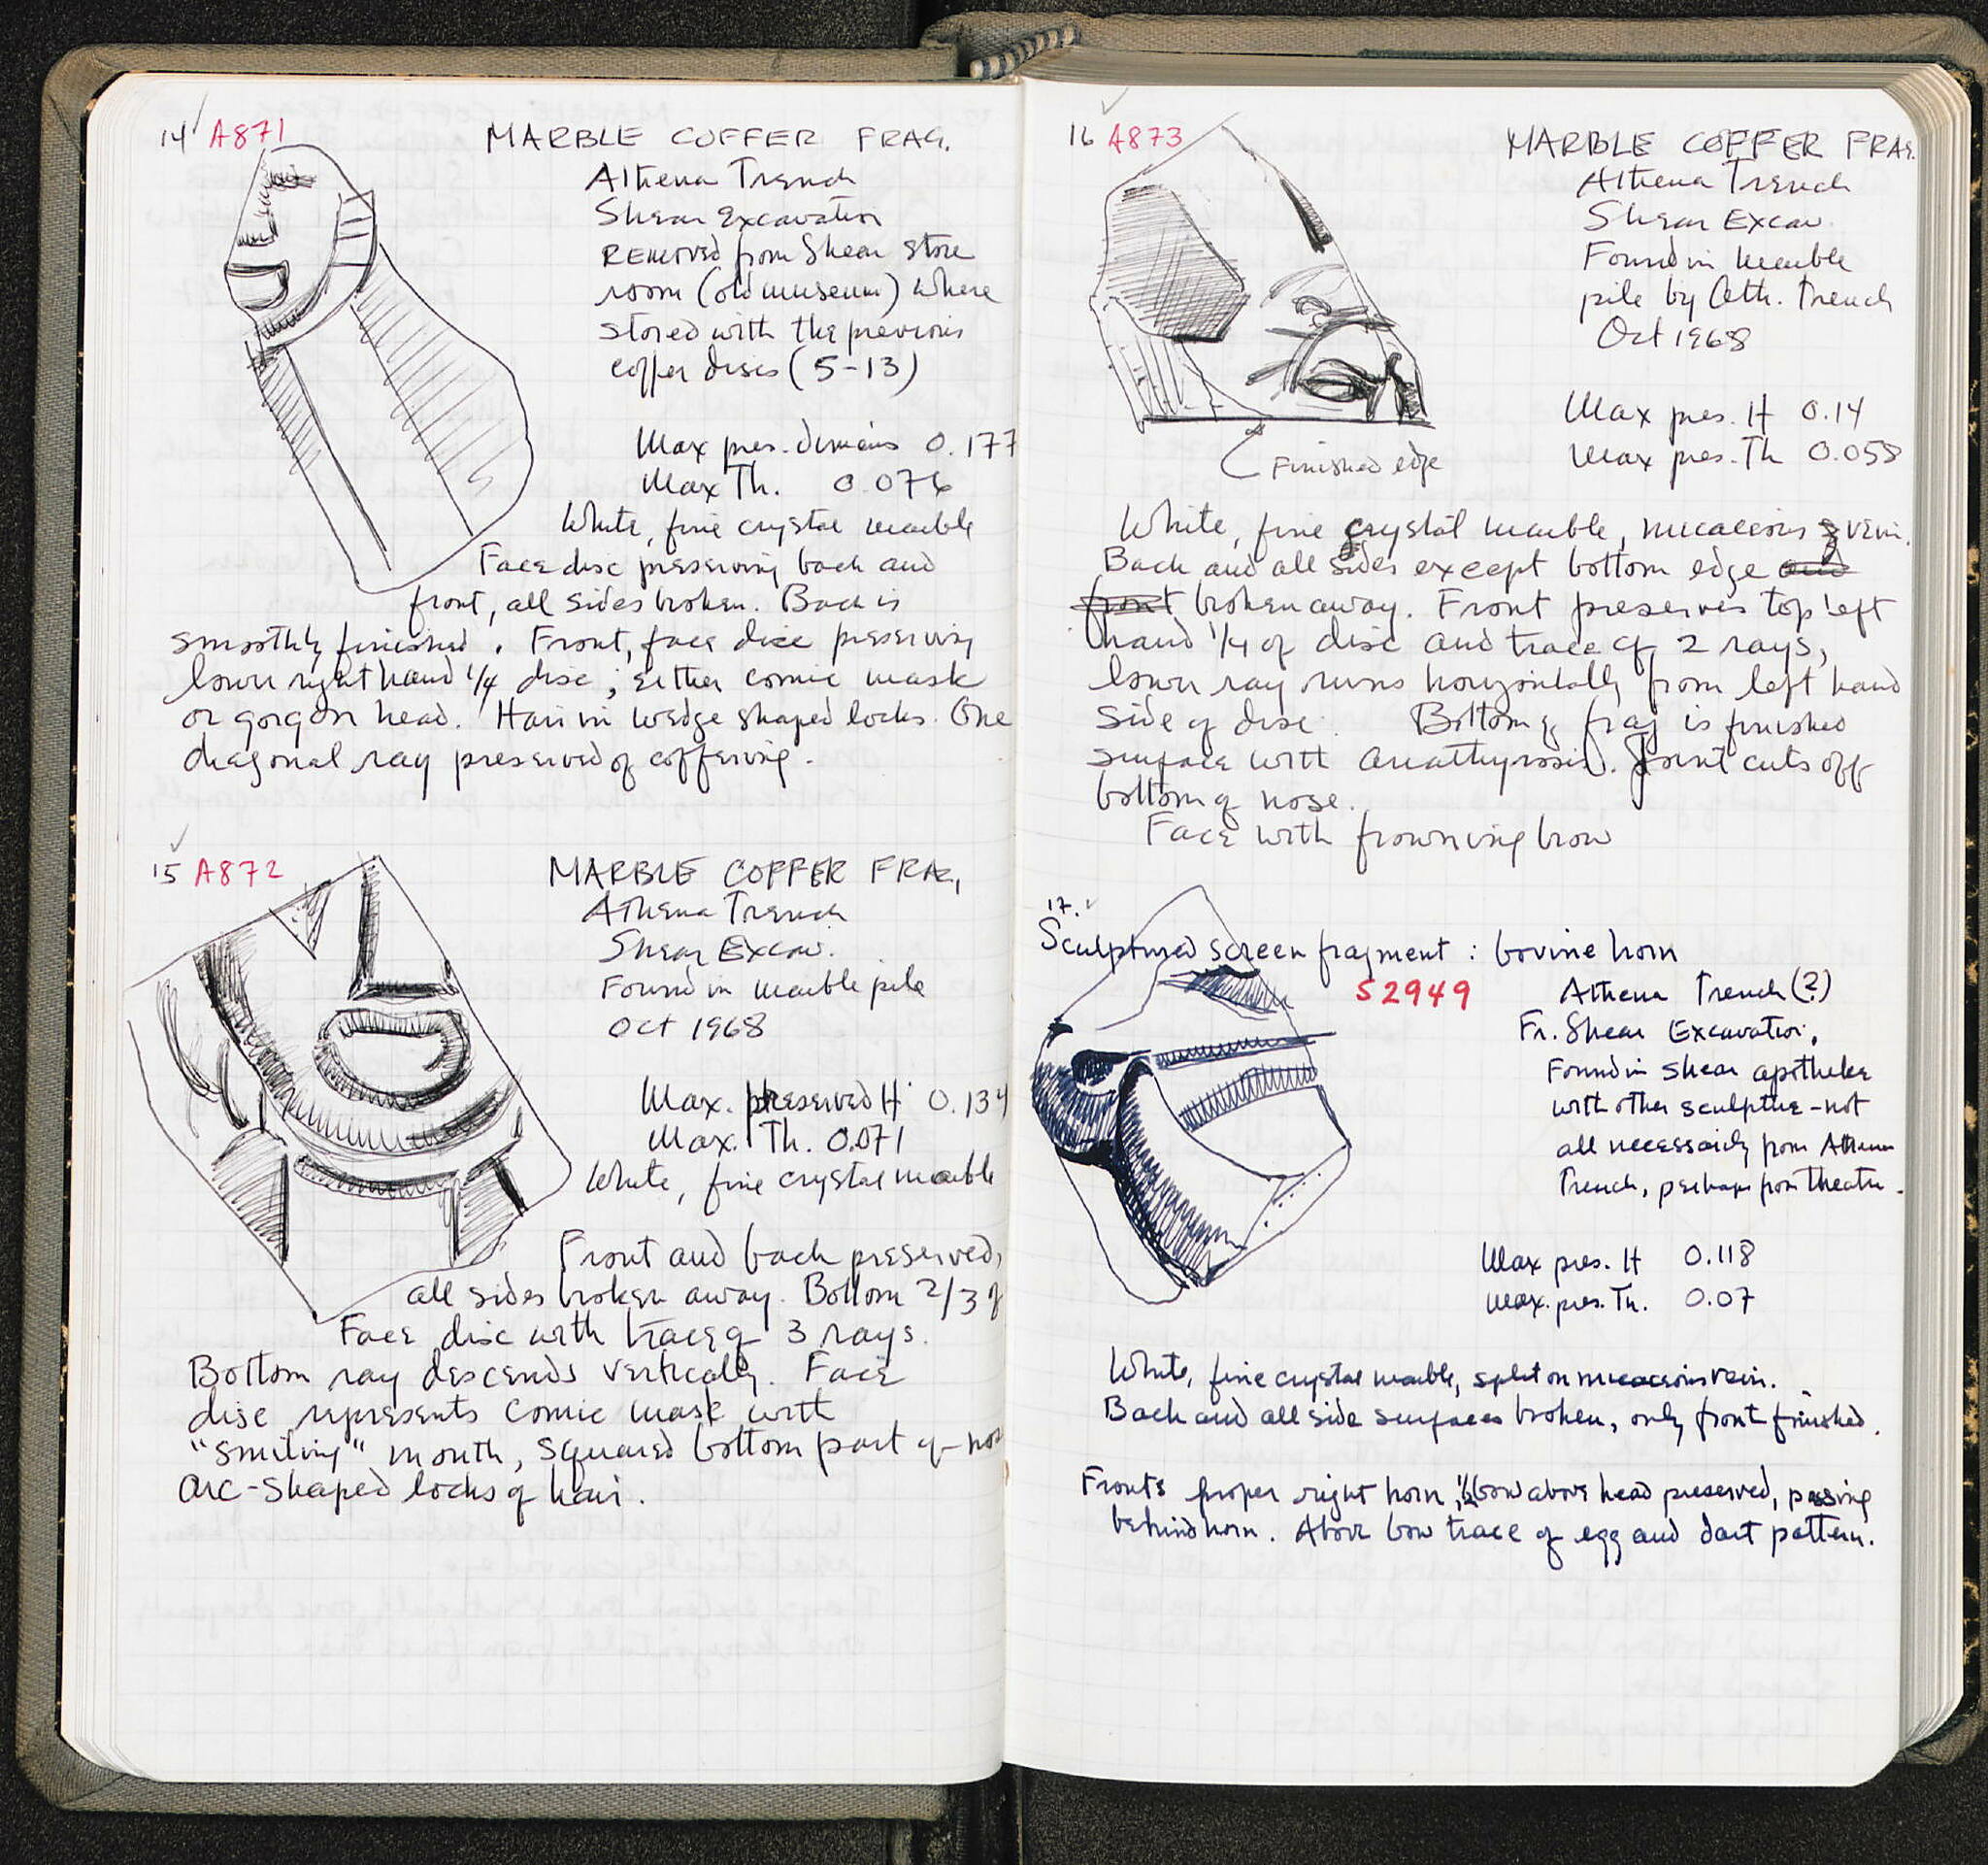 14 A871 MARBLE COFFER FRAG.
Athena Trench
Shear Excavation
REMOVED from Shear Store
room (old museum) where
stored with the previous
coffer discs (5-13)
Max pres. dimens 0.177
Max Th. 0.076
White, fine crystal marble
Face disc preserving back and
front, all sides broken. Back is
smoothly finished. Front, face disc preserving
lower right hand 1/4 disc; either comic mask
or gorgon head. Hair in wedge shaped locks. One
diagonal ray preserved of coffering.
15 A872 MARBLE COFFER FRAG,
Athena Trench
Shear Excav.
Found in marble pile
Oct 1968
Max. preserved H 0.134
Max. Th. 0.071
White, fine crystal marble
Front and back preserved,
all sides broken away. Bottom 2/3 of
Face disc with trace of 3 rays.
Bottom ray descends vertically. Face
disc represents comic mask with
"smiling" mouth, squared bottom part of nose
arc-shaped locks of hair.
16 A873 MARBLE COFFER FRAG.
Athena Trench
Shear Excav.
Found in marble
pile by Ath. Trench
Oct 1968
Max pres. H 0.14
Max pres. Th 0.058
Finished edge
White, fine crystal marble, micaceous vein.
Back and all sides except bottom edge and
front broken away. Front preserves top left
hand 1/4 of disc and trace of 2 rays,
lower ray runs horizontally from left hand
side of disc. Bottom of frag is finished
surface with anathyrosis. Joint cuts off
bottom of nose.
Face with frowning brow
17.
Sculptured screen fragment : bovine horn
S2949 Athena Trench (?)
Fr. Shear Excavation.
Found in Shear apotheke
with other sculpture - not
all necessarily from Athena
Trench, perhaps from Theatre.
Max pres. H 0.118
Max. pres. Th. 0.07
White, fine crystal marble, split on micaceous vein.
Back and all side surfaces broken, only front finished.
Front: proper right horn, 1/2 bow above head preserved, passing
behind horn. Above bow trace of egg and dart pattern.